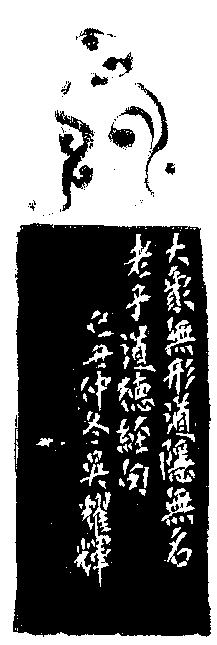 大象無形道隱無名
老子道德經句
己丑仲冬吳耀輝